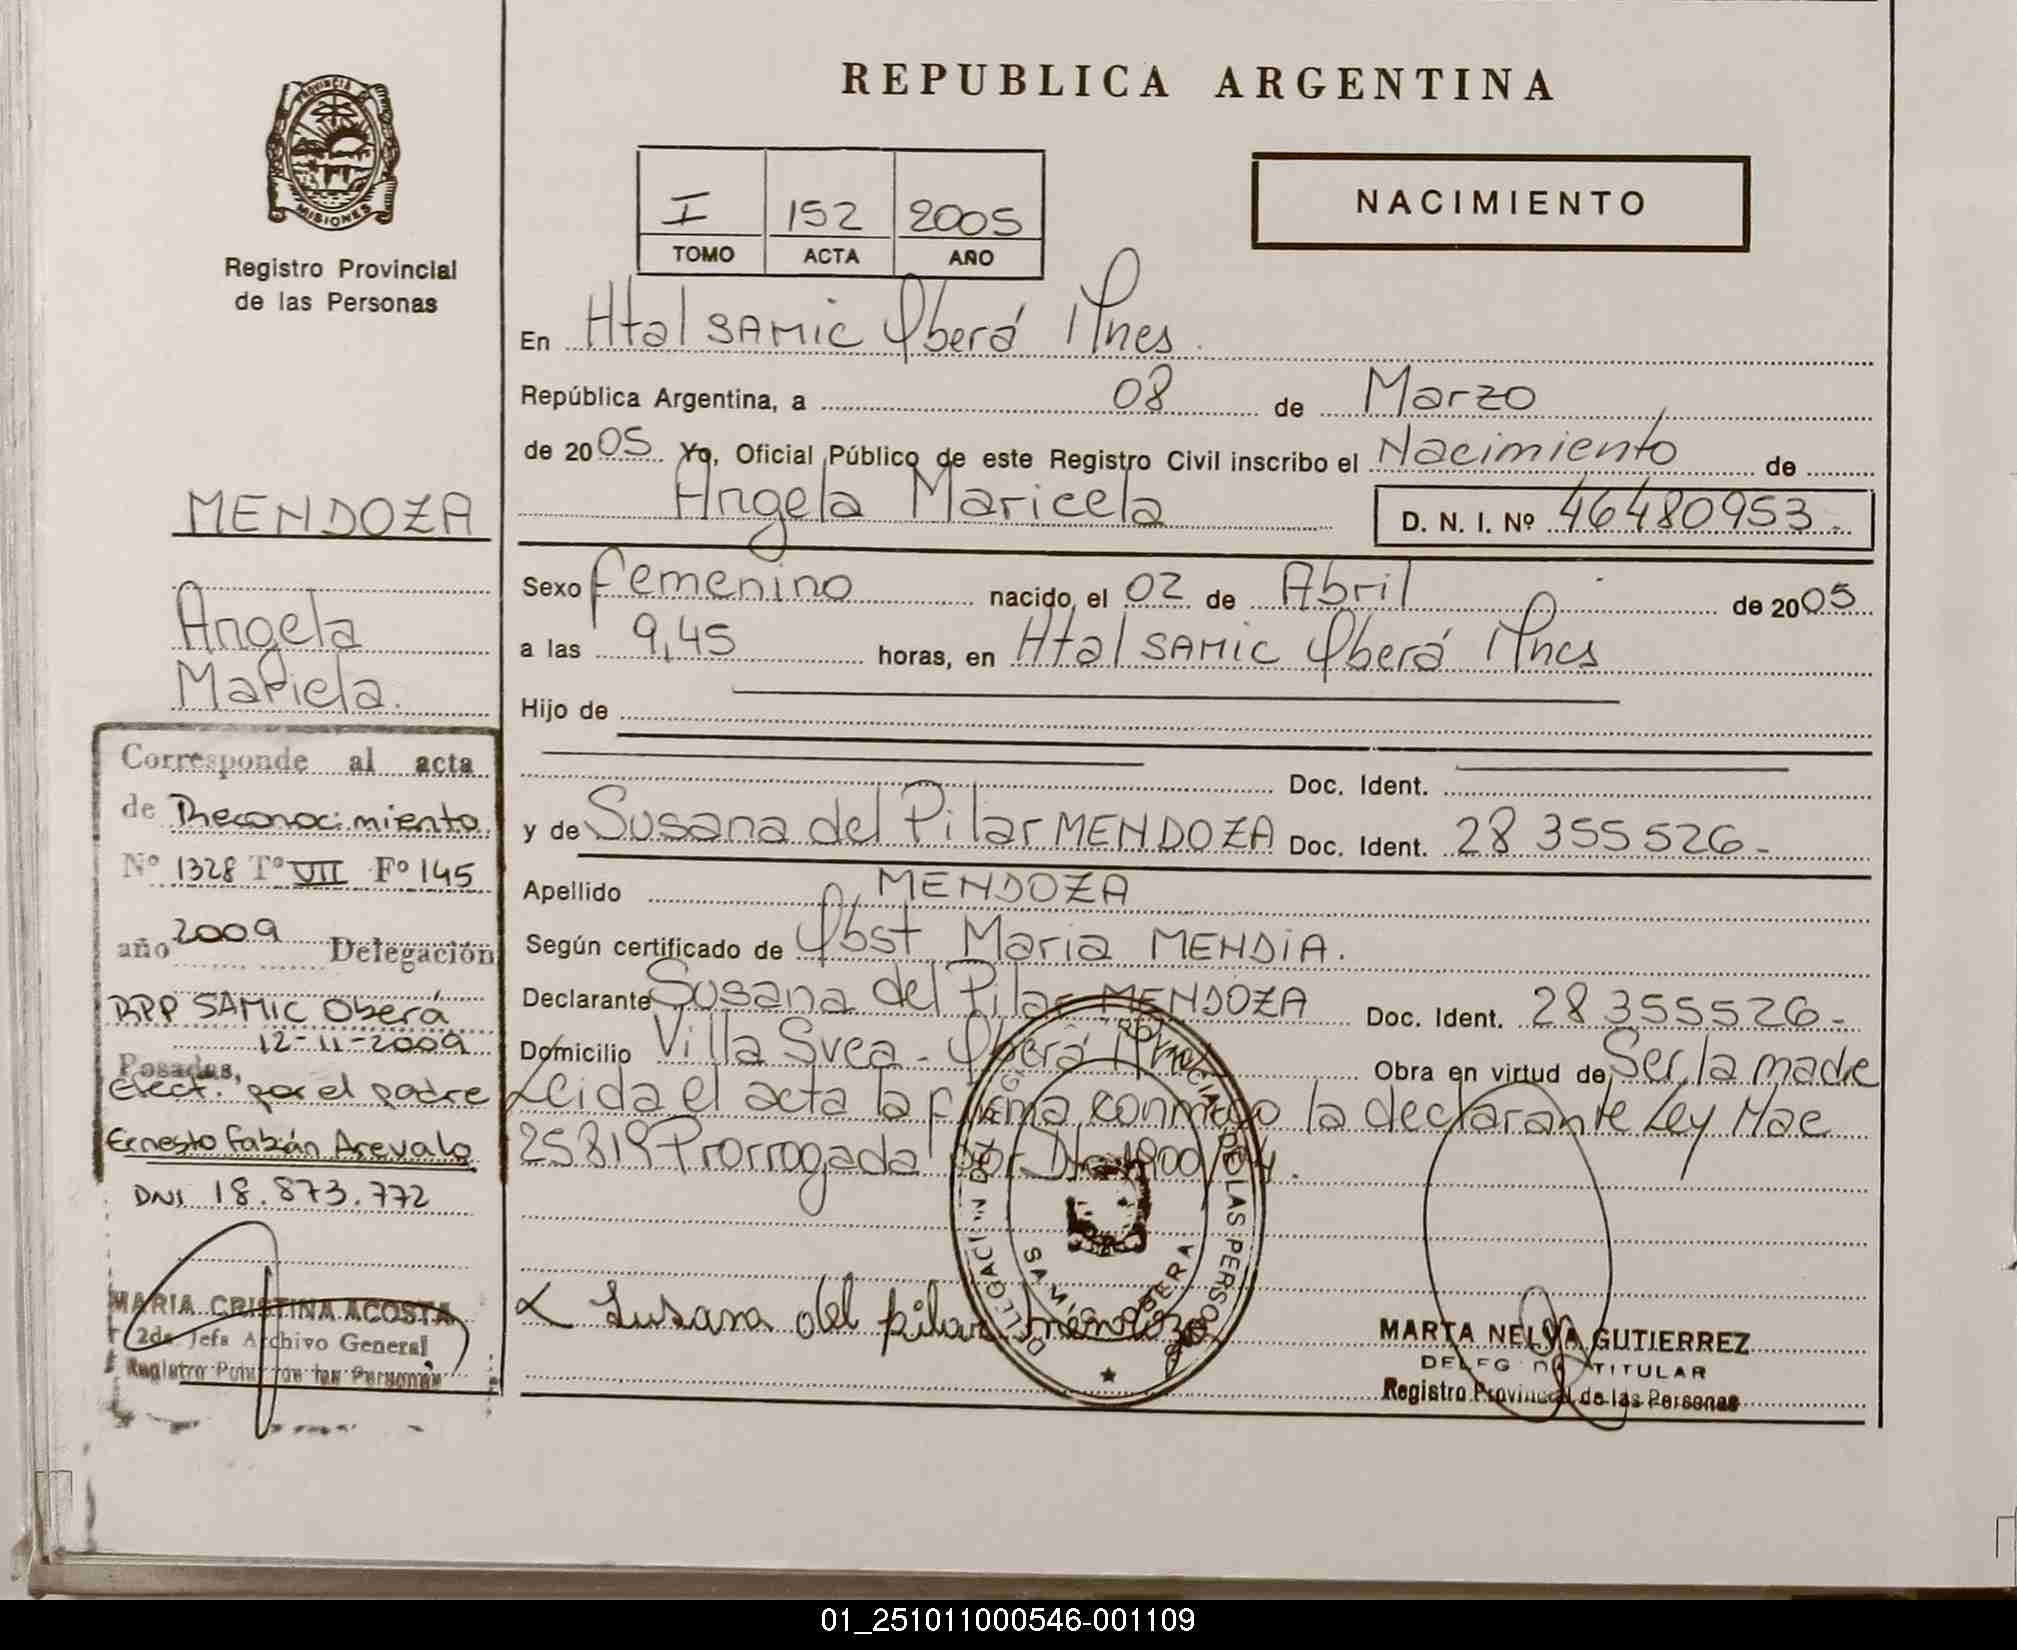 PROVINCIA DE
MISIONES
Registro Provincial
de las Personas
REPUBLICA ARGENTINA
I 152 2005
TOMO ACTA AÑO
NACIMIENTO
En Htal SAMIC Oberá Mnes.
República Argentina, a 08 de Marzo
de 2005 Yo, Oficial Público de este Registro Civil inscribo el Nacimiento de
Angela Maricela D. N. I. Nº 46480953.
Sexo femenino nacido el 02 de Abril de 2005
a las 9,45 horas, en Htal SAMIC Oberá Mnes
Hijo de
Doc. Ident.
y de Susana del Pilar MENDOZA Doc. Ident. 28 355526-
Apellido MENDOZA
Según certificado de Obst Maria MENDIA.
Declarante Susana del Pilar MENDOZA Doc. Ident. 28 355526-
Domicilio Villa Svea - Oberá Mnes Obra en virtud de Ser la madre
Leida el acta la firma conmigo la declarante Ley Nac
25819 Prorrogada por
Susana del pilar mendoza
DELEGACION DEL REGISTRO PROVINCIAL DE LAS PERSONAS
OBERA
MARTA NELVA GUTIERREZ
DELEGADA TITULAR
Registro Provincial de las Personas
MENDOZA
Angela
Maricla.
Corresponde al acta
de Reconocimiento
Nº 1328 Tº VII Fº 145
año 2009 Delegación
RPP SAMIC Oberá
12-11-2009
Posadas,
efect. por el padre
Ernesto Fabián Arevalo
DNI 18.873.772
MARIA CRISTINA ACOSTA
2da Jefa Archivo General
Registro Prov. de las Personas
01_251011000546-001109